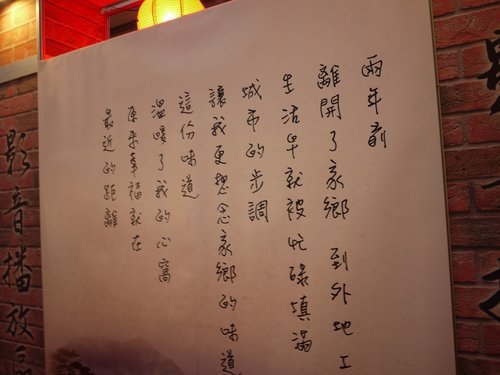 兩年前
離開了家鄉 到外地工
生活早就被忙碌填滿
城市的步調
讓我更想念家鄉的味道
這份味道
溫暖了我的心窩
原來幸福就在
最近的距離
影音播放區